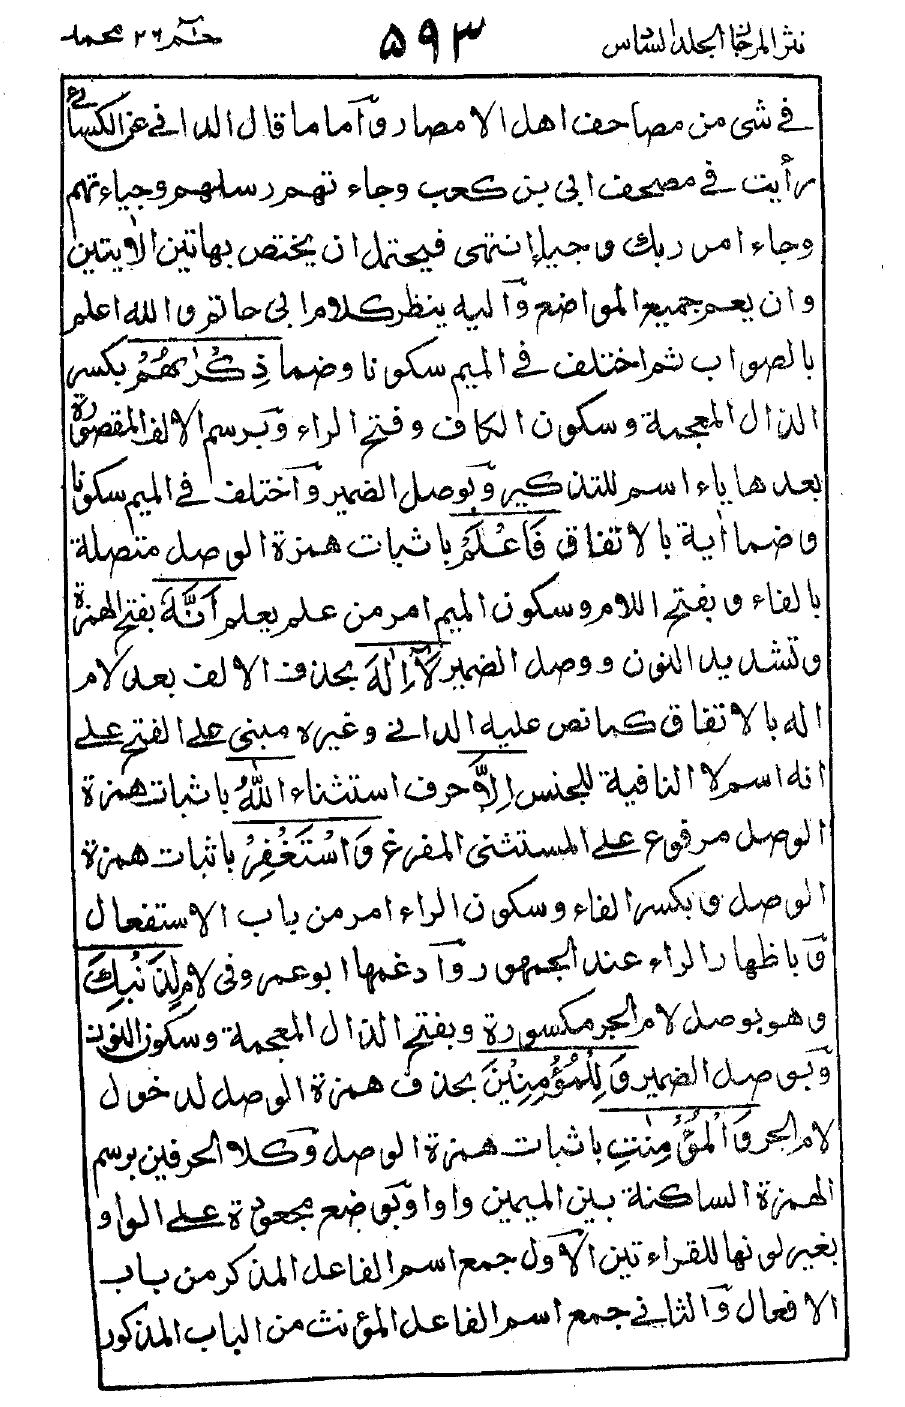 نثر المرجان الجلد السادس ٥٩٣ حٰم ٢٦ محمد
في شئ من مصاحف اهل الامصار وآما ما قال الداني عن الكسائي
رأيت في مصحف ابى بن كعب وجاء تهم رسلهم وجياء تهم
وجاء امر ربك وجيإ انتهى فيحتمل ان يختص بهاتين الاٰيتين
وان يعم جميع المواضع وآليه ينظر كلام ابى حاتم والله اعلم
بالصواب ثم اختلف في الميم سكونا وضما ذِكْرٰىهُمْ بكسر
الذال المعجمة وسكون الكاف وفتح الراء وٓبرسم الالف المقصورة
بعدها ياء اسم للتذكير وٓبوصل الضمير وآختلف في الميم سكونا
وضما اٰية بالاتفاق فَاعْلَمْ باثبات همزة الوصل متصلة
بالفاء وبفتح اللام وسكون الميم امر من علم يعلم اَنَّهٗ بفتح الهمزة
وتشديد النون ووصل الضمير لَآ اِلٰهَ بحذف الالف بعد لام
اله بالاتفاق كما نص عليه الداني وغيره مبنى على الفتح على
انه اسم لا النافية للجنس اِلَّا حرف استثناء اللّٰهُ باثبات همزة
الوصل مرفوع على المستثنى المفرغ وَاسْتَغْفِرْ باثبات همزة
الوصل وبكسر الفاء وسكون الراء امر من باب الاستفعال
وٓباظهار الراء عند الجمهور وآدغمها ابو عمرو في لام لِذَنْبِكَ
وهو بوصل لام الجر مكسورة وبفتح الذال المعجمة وسكون النون
وٓبوصل الضمير وَلِلْمُؤْمِنِيْنَ بحذف همزة الوصل لدخول
لام الجر وَالْمُؤْمِنٰتِ باثبات همزة الوصل وٓكلا الحرفين برسم
الهمزة الساكنة بين الميمين واوا وٓبوضع مجعودة على الواو
بغير لونها للقراءتين الآول جمع اسم الفاعل المذكر من باب
الافعال وٓالثاني جمع اسم الفاعل المؤنث من الباب المذكور